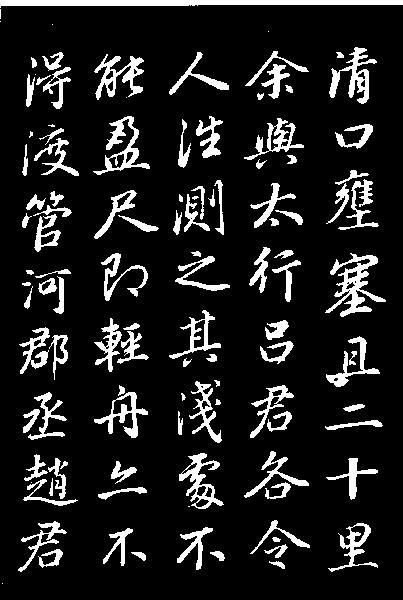 清口壅塞且二十里
余與太行吕君各令
人往測之其淺處不
能盈尺即輕舟亦不
得渡管河郡丞趙君